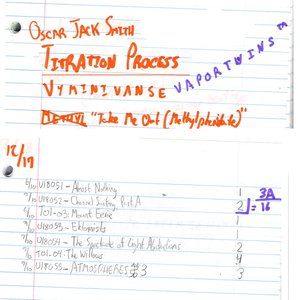 OSCAR JACK SMITH
TITRATION PROCESS
VYMINIVANSE VAPORTWINS™
METHYL "Take Me Out (Methylphenidate)"
12/19
6/10 U18051 - Almost Nothing 1
7/10 U18052 - Channel Surfing, Part A 2
8/10 T01-03: Mount Eerie 1
9/10 U18053 - Ektomists 1
U18054 - The Spectacle of Light Abductions 2
T01-04: The Willows 4
9/10 U18055 - ATMOSPHERES #3 3
3A
= 16